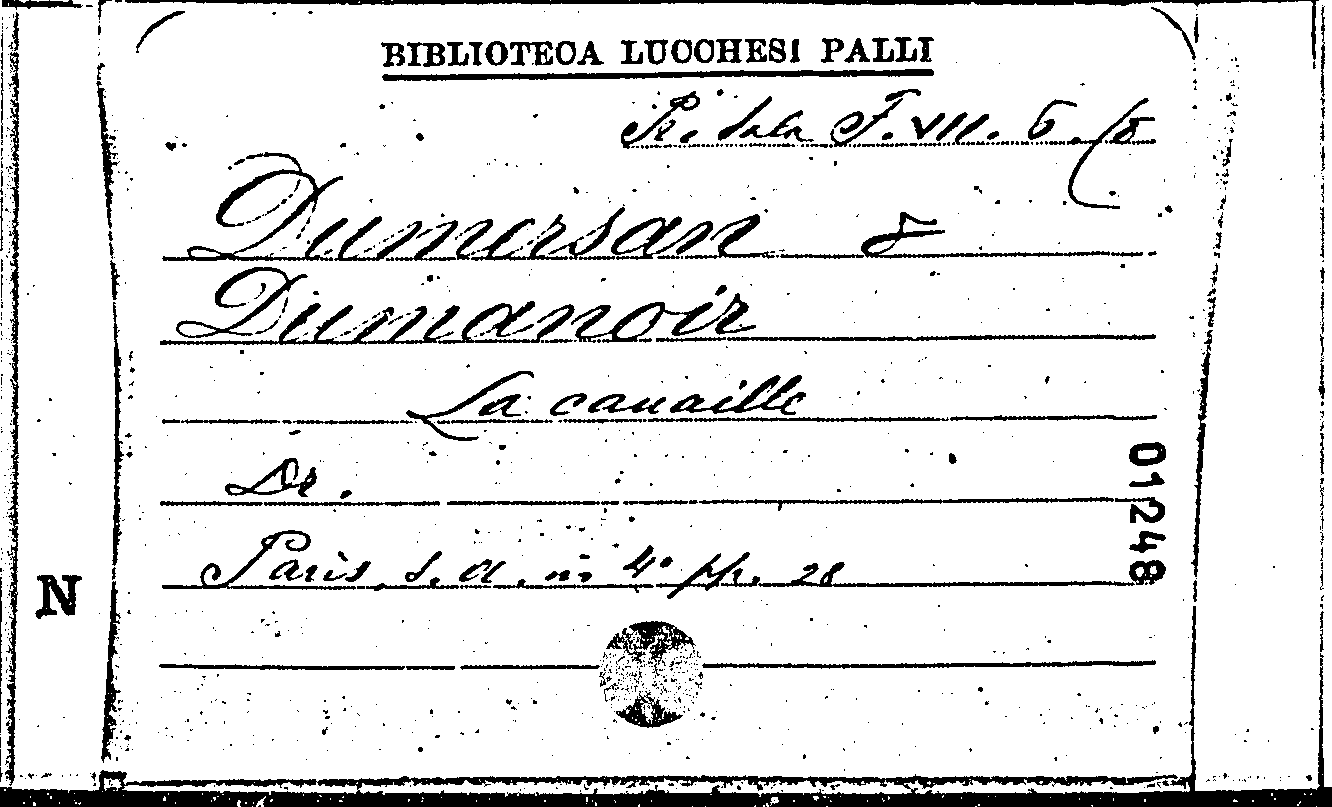 BIBLIOTECA LUCCHESI PALLI
Pr. Sala F. VII. 6. (8
Dumersan &
Dumanoir
La canaille
Dr.
Paris, s. a. in 4° pp. 28
01248
N